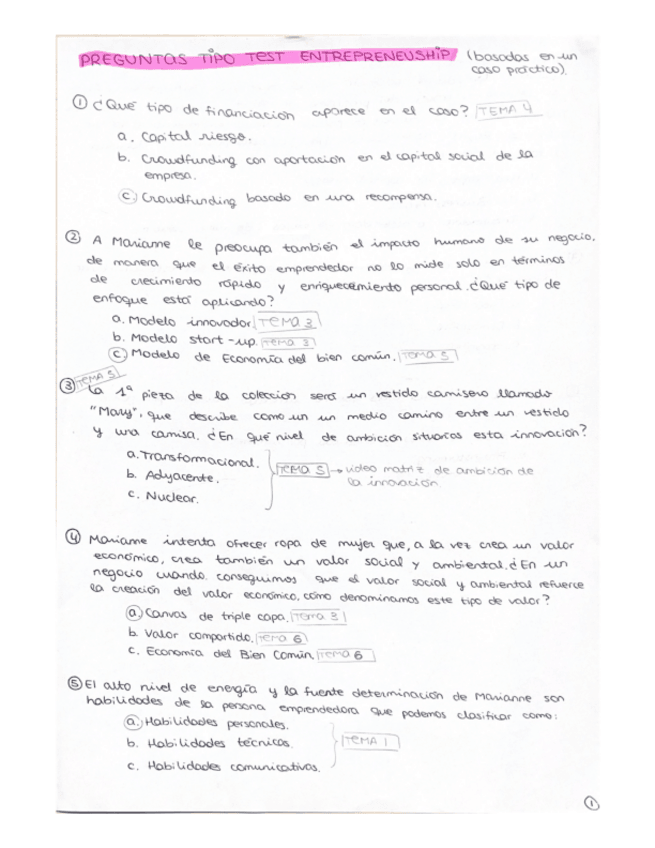 PREGUNTAS TIPO TEST ENTREPRENEUSHIP (basadas en un
caso práctico).
① ¿Qué tipo de financiación aparece en el caso? TEMA 4
a. Capital riesgo.
b. Crowdfunding con aportación en el capital social de la
empresa.
c. Crowdfunding basado en una recompensa.
② A Marianne le preocupa también el impacto humano de su negocio,
de manera que el éxito emprendedor no lo mide solo en términos
de crecimiento rápido y enriquecimiento personal. ¿Qué tipo de
enfoque está aplicando?
a. Modelo innovador. TEMA 3
b. Modelo start-up. TEMA 3
c. Modelo de Economía del bien común. TEMA 5
③ TEMA 5
La 1ª pieza de la colección será un vestido camisero llamado
"Mary", que describe como un un medio camino entre un vestido
y una camisa. ¿En qué nivel de ambición situarías esta innovación?
a. Transformacional.
b. Adyacente. TEMA 5 → video matriz de ambición de
la innovación
c. Nuclear.
④ Marianne intenta ofrecer ropa de mujer que, a la vez crea un valor
económico, crea también un valor social y ambiental. ¿En un
negocio cuando conseguimos que el valor social y ambiental refuerce
la creación del valor económico, cómo denominamos este tipo de valor?
a. Canvas de triple capa. Tema 3
b. Valor compartido. Tema 6
c. Economía del Bien Común. Tema 6
⑤ El alto nivel de energía y la fuente determinación de Marianne son
habilidades de la persona emprendedora que podemos clasificar como:
a. Habilidades personales.
b. Habilidades técnicas. TEMA 1
c. Habilidades comunicativas.
①